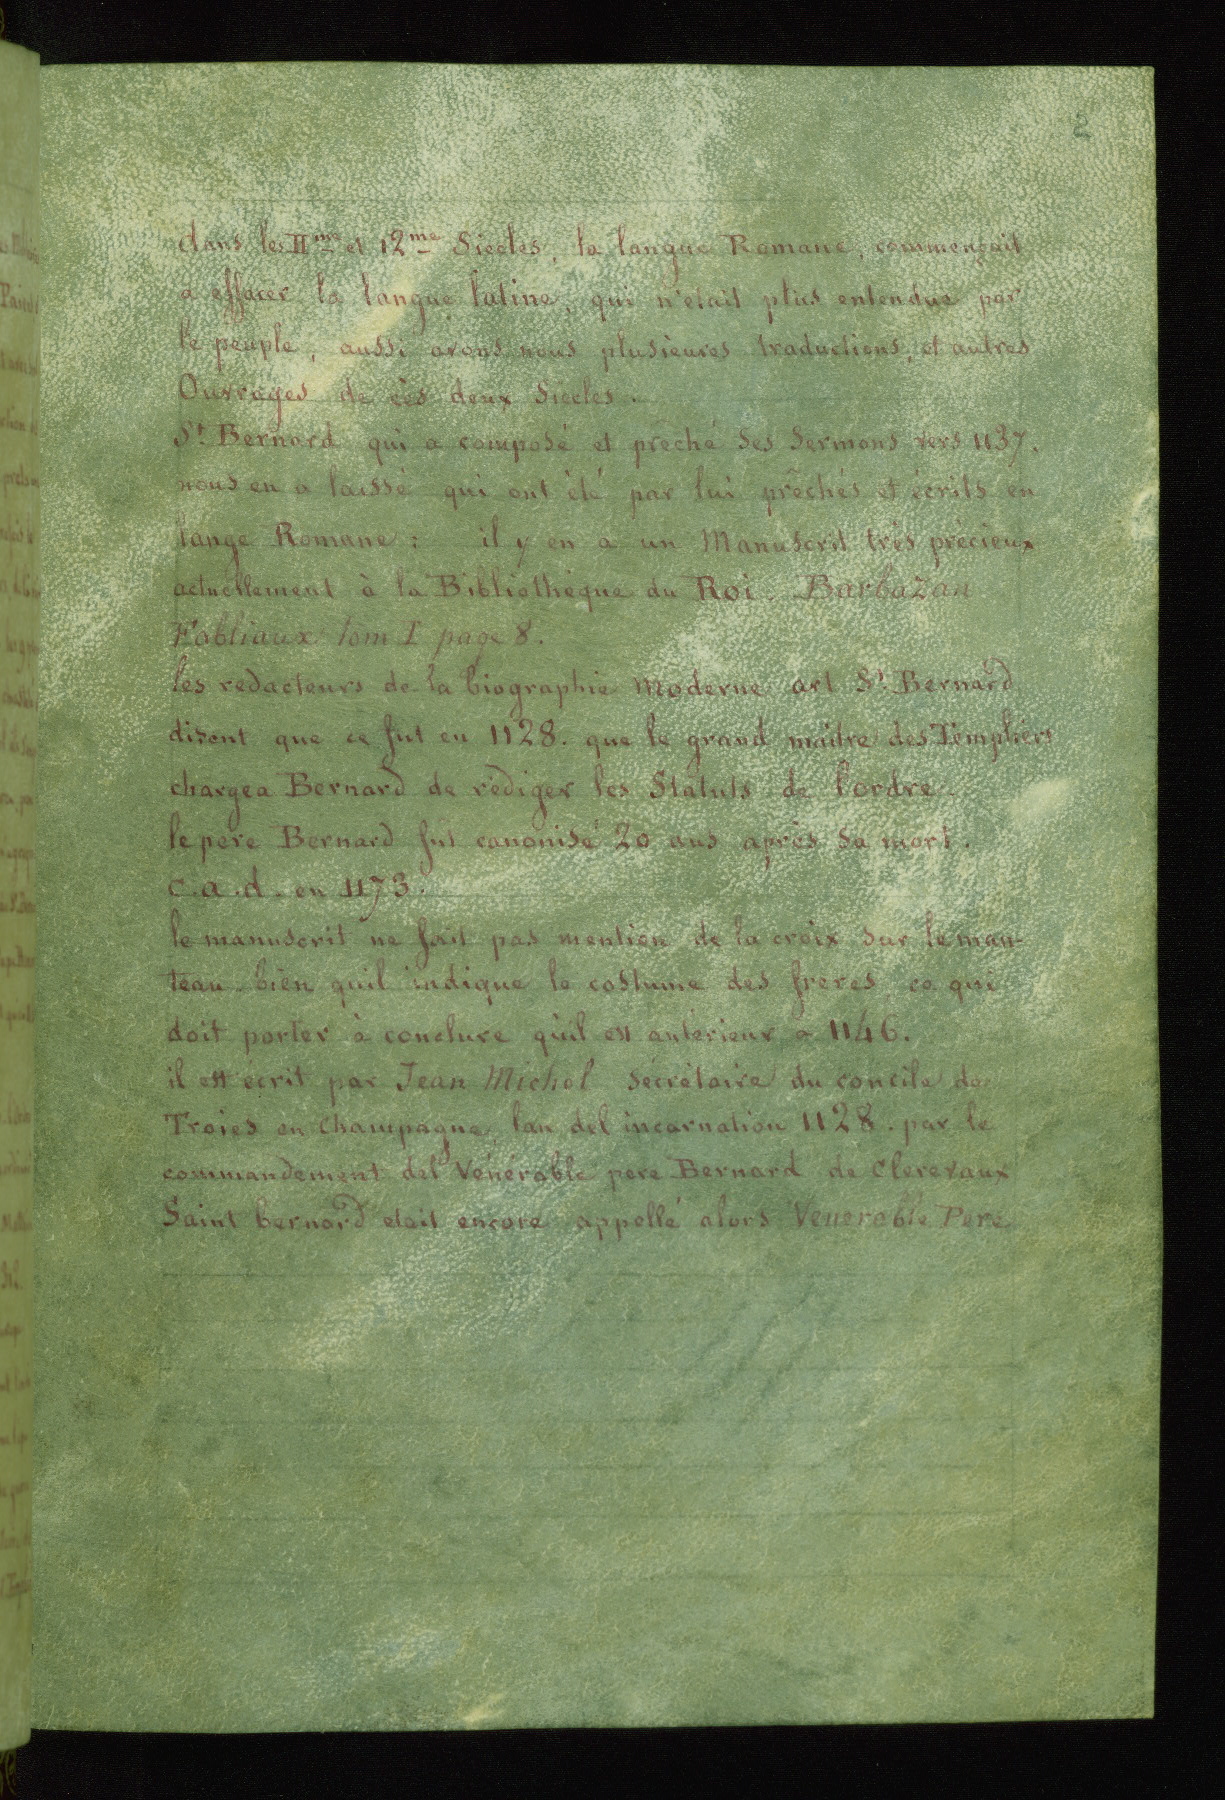 2
dans les 11me et 12me Siecles, la langue Romane, commençait
a effacer la langue latine, qui n'etait plus entendue par
le peuple, aussi avons nous plusieures traductions, et autres
Ouvrages de ces deux Siecles.
St. Bernard qui a composé et preché Ses Sermons vers 1137.
nous en a laissé qui ont été par lui prechés et écrits en
lange Romane: il y en a un Manuscrit très précieux
actuellement à la Bibliothéque du Roi. Barbazan
Fabliaux tom I page 8.
les redacteurs de la biographie Moderne art St. Bernard
disent que ce fut en 1128. que le grand maitre des Templiers
chargea Bernard de rediger les Statuts de l'ordre.
le pere Bernard fut canonisé 20 ans après Sa mort.
C.a.d. en 1173.
le manuscrit ne fait pas mention de la croix sur le man-
teau. bien quil indique le costume des freres ce qui
doit porter à conclure qu'il est antérieur a 1146.
il est ecrit par Jean Michel Secrétaire du concile de
Troies en Champagne, lan del incarnation 1128. par le
commandement del Vénérable pere Bernard de Clerevaux
Saint bernard etait encore appellé alors Venerable Pere